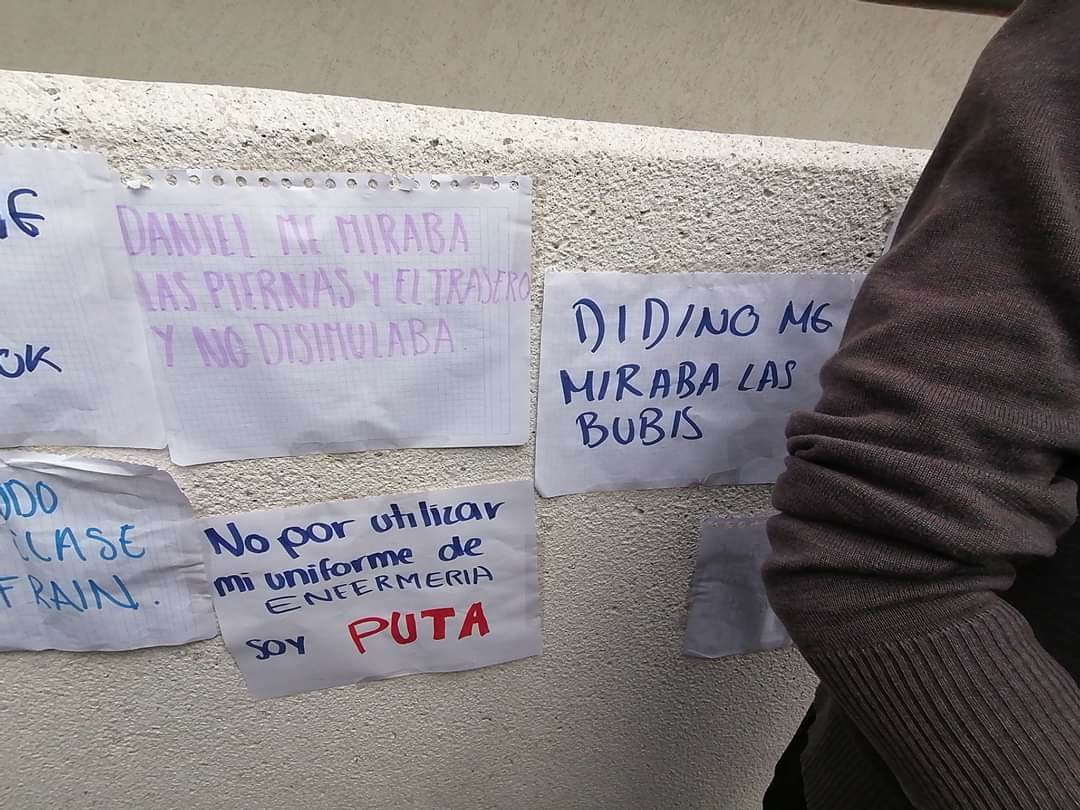 DANIEL ME MIRABA
LAS PIERNAS Y EL TRASERO
Y NO DISIMULABA.
DIDINO ME
MIRABA LAS
BUBIS
CLASE
No por utilizar
mi uniforme de
ENFERMERIA
soy PUTA